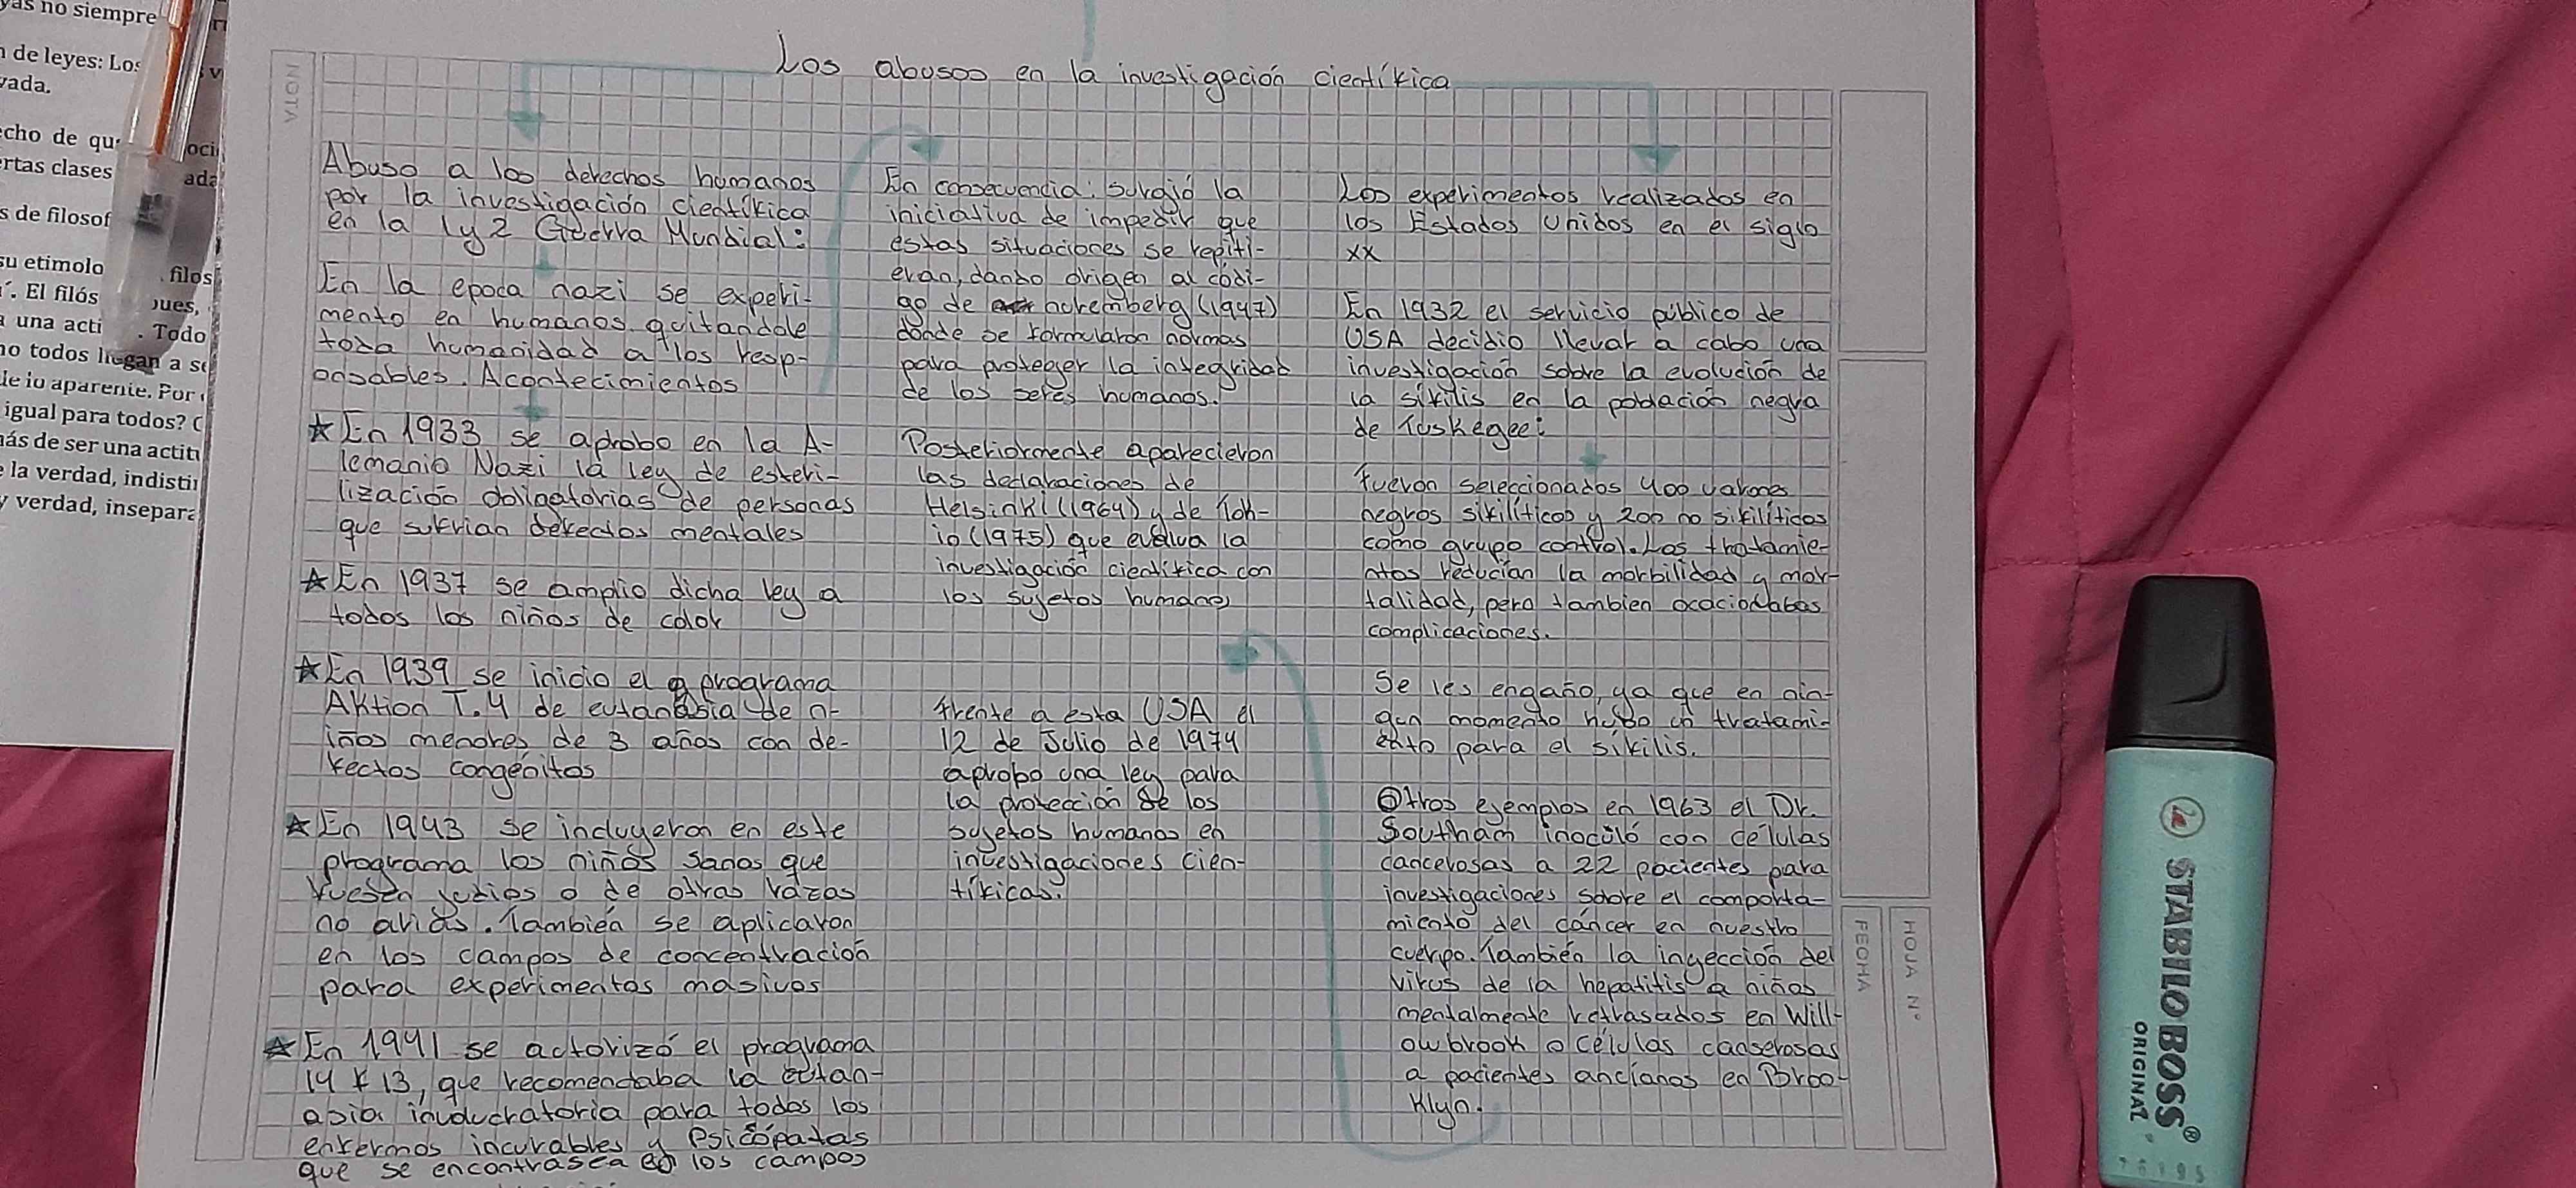 yas no siempre
n de leyes: Los
vada.
echo de qu
oci
rtas clases
ada
s de filosof
su etimolo
filos
. El filós
pues,
a una acti
. Todo
no todos llegan a se
de lo aparente. Por
igual para todos? C
más de ser una actit
e la verdad, indisti
y verdad, insepara
NOTA
Los abusos en la investigación científica
Abuso a los derechos humanos
por la investigación científica
en la 1y2 Guerra Mundial:
En la epoca nazi se experi-
mento en humanos quitandole
toda humanidad a los resp-
onsables. Acontecimientos
★ En 1933 se aprobo en la A-
lemania Nazi la ley de esteri-
lización obligatorias de personas
que sufrian defectos mentales
★ En 1937 se amplio dicha ley a
todos los niños de color
★ En 1939 se inicio el programa
Aktion T.4 de eutanasia de n-
iños menores de 3 años con de-
fectos congénitos
★ En 1943 se incluyeron en este
programa los niños sanos que
fuesen judios o de otras razas
no arias. También se aplicaron
en los campos de concentración
para experimentos masivos
★ En 1941 se actorizó el programa
14 f 13, que recomendaba la eutan-
asia involucratoria para todos los
enfermos incurables y Psicópatas
que se encontrasen en los campos
En consecuencia: surgió la
iniciativa de impedir que
estas situaciones se repiti-
eran, dando origen al códi-
go de nuremberg (1947)
donde se formularon normas
para proteger la integridad
de los seres humanos.
Posteriormente aparecieron
las declaraciones de
Helsinki (1964) y de Tok-
io (1975) que evalua la
investigación científica con
los sujetos humanos
frente a esta USA el
12 de Julio de 1974
aprobo una ley para
la protección de los
sujetos humanos en
investigaciones cien-
tíficas.
Los experimentos realizados en
los Estados Unidos en el siglo
xx
En 1932 el servicio público de
USA decidio llevar a cabo una
investigación sobre la evolución de
la sífilis en la población negra
de Tuskegee:
fueron seleccionados 400 varones
negros sifilíticos y 200 no sifilíticos
como grupo control. Los thatamie-
ntos reducían la morbilidad y mor-
talidad, pero tambien ocacionabas
complicaciones.
Se les engaño, ya que en nin-
gun momento hubo un tratami-
ento para el sífilis.
Otros ejemplos en 1963 el Dr.
Southam inoculó con células
cancerosas a 22 pacientes para
investigaciones sobre el comporta-
miento del cáncer en nuestro
cuerpo. También la inyección del
virus de la hepatitis a niños
mentalmente retrasados en Will-
owbrook o células canserosas
a pacientes ancianos en Broo-
klyn.
FECHA
HOJA N°
STABILO BOSS®
ORIGINAL